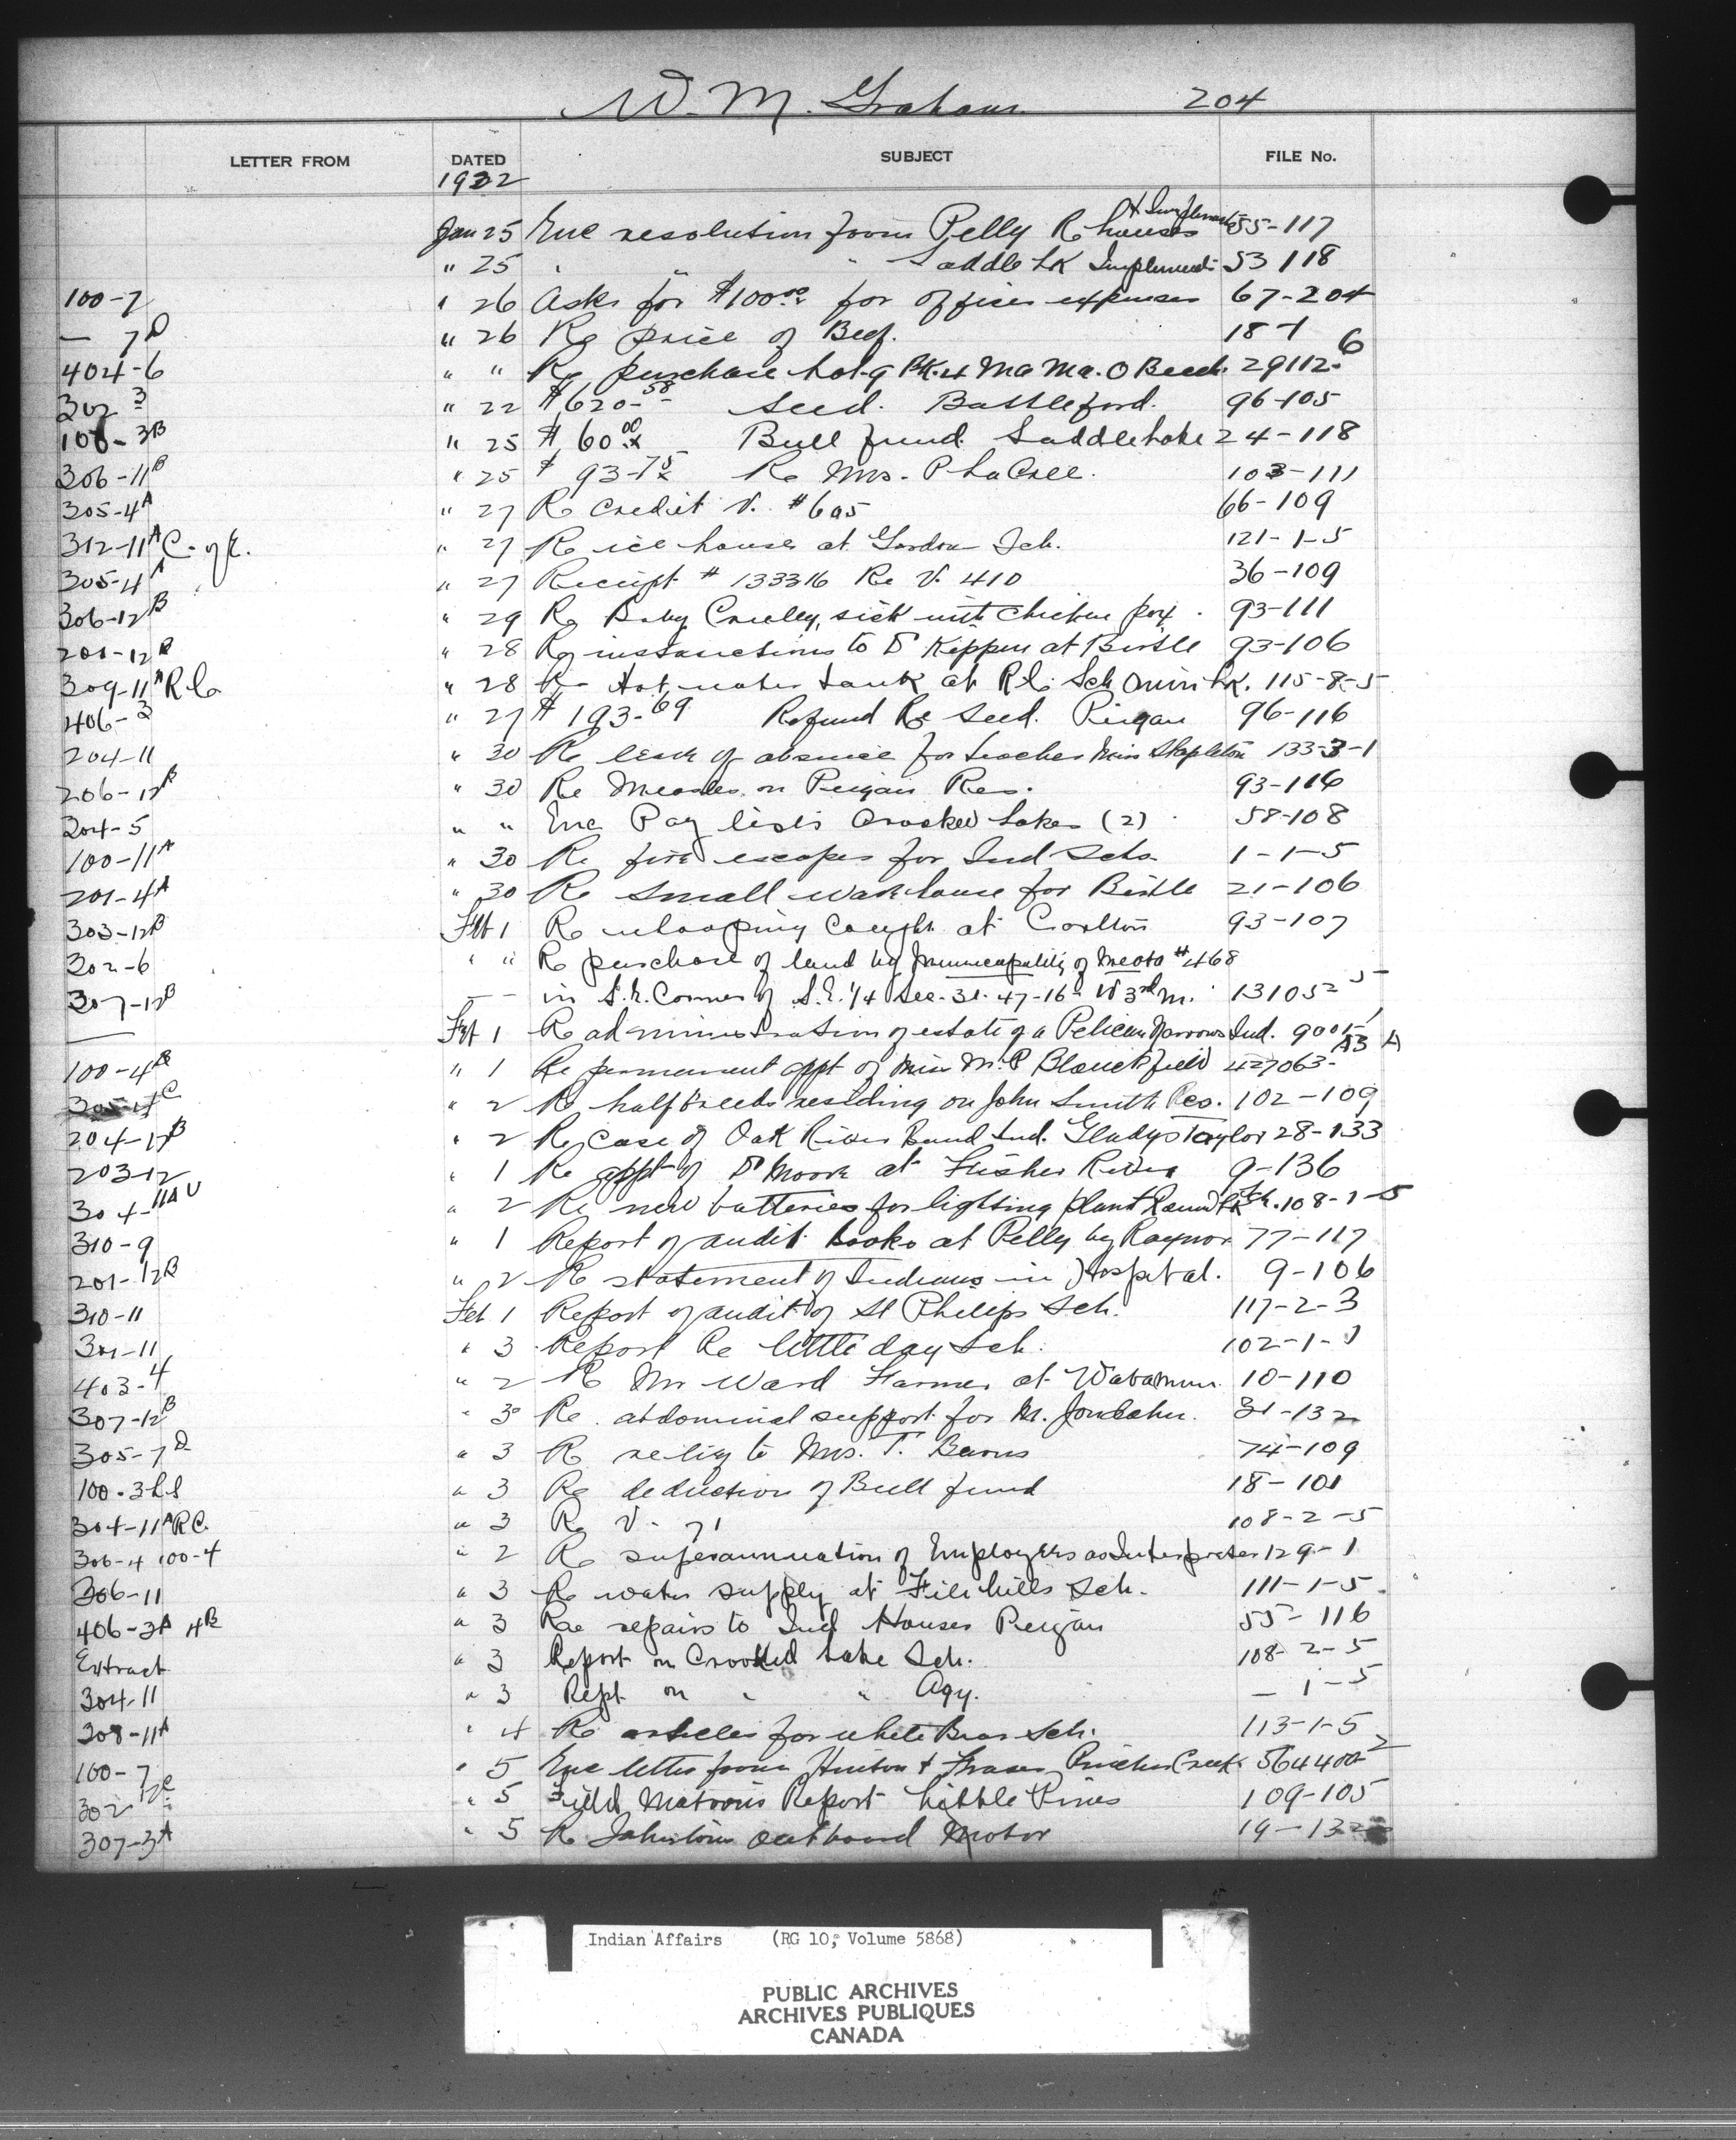 W. M. Graham 204
LETTER FROM DATED SUBJECT FILE No.
1932
Jan 25 Enc resolution from Pelly Re houses & Implements 55-117
" 25 " " " Saddle Lk Implements 53 118
100-7 " 26 Asks for $100.00 for office expenses 67-204
— 7D " 26 Re price of Beef. 18-1
404-6 " " Re purchase Lot 9 Bk. 4 Ma Me O Beach 29112-6
302 3 " 22 $620-58 Seed. Battleford. 96-105
108-3B " 25 $60.00 Bull fund Saddle Lake 24-118
306-11B " 25 $93-75 Re Mrs. P LaCree. 103-111
305-4A " 27 Re Credit V. #605 66-109
312-11A C. of E. " 27 Re ice house at Gordon Sch. 121-1-5
305-4A " 27 Receipt # 133316 Re V. 410 36-109
306-12B " 29 Re Baby Crielley, sick with chicken pox. 93-111
201-12B " 28 Re instructions to Dr Kippen at Birtle 93-106
309-11A R C. " 28 Re Hot water tank at R C. Sch Onion Lk. 115-8-5
406-3 " 27 $193-69 Refund Re Seed. Peigan 96-116
204-11 " 30 Re leave of absence for teacher Miss Stapleton 133-3-1
206-12B " 30 Re Measles on Peigan Res. 93-116
304-5 " " Enc Pay lists Crooked Lakes (2) 58-108
100-11A " 30 Re fire escapes for Ind Schs. 1-1-5
201-4A " 30 Re small warehouse for Birtle 21-106
303-12B Feb 1 Re whooping cough at Carlton 93-107
302-6 " " Re purchase of land by Municipality of Meota #468
307-12B — — in S.E. Corner of S.E. 1/4 Sec. 31-47-16- W 3rd M. 13105-5
— Feb 1 Re administration of estate of a Pelican Narrows Ind. 9005-1
100-4B " 1 Re permanent appt of Miss M. P Blanchfield 427063-
305-4C " 2 Re halfbreeds residing on John Smith Res. 102-109
204-12B " 2 Re case of Oak River Band Ind. Gladys Taylor 28-133
203-12 " 1 Re appt of Dr Moore at Fisher River 9-136
304-11A U " 2 Re new batteries for lighting plant Round Lk Sch. 108-1-5
310-9 " 1 Report of audit books at Pelly by Raynor 77-117
201-12B " 2 Re statement of Indians in Hospital. 9-106
310-11 Feb 1 Report of audit of St Philips Sch. 117-2-3
301-11 " 3 Report Re little day Sch. 102-1-1
403-4 " 2 Re Mr Ward Farmer at Wabamun 10-110
307-12B " 3 Re. abdominal support for M. 31-132
305-7D " 3 Re relig to Mrs. T. Burns 74-109
100-3 " 3 Re deduction of Bull fund 18-101
304-11A RC. " 3 Re V- 71 108-2-5
306-4 100-4 " 2 Re superannuation of Employees as Interpreter 129-1
306-11 " 3 Re water supply at File hills Sch. 111-1-5
406-3A 4B " 3 Re repairs to Ind Houses Peigan 55-116
Extract " 3 Report on Crooked Lake Sch. 108-2-5
304-11 " 3 Rept. on " " Agy. — 1-5
308-11A " 4 Re articles for White Bear Sch. 113-1-5
100-7 " 5 Enc letter from Hinton & Fraser Pincher Creek 564400-2
302 12C " 5 Field Matron's Report Little Pines 109-105
307-3A " 5 Re Johnston outboard Motor 19-132
Indian Affairs (RG 10, Volume 5868)
PUBLIC ARCHIVES
ARCHIVES PUBLIQUES
CANADA